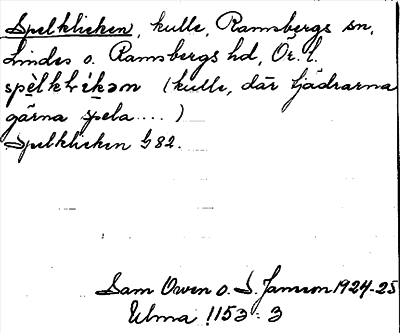 Spelklicken, kulle, Ramsbergs sn,
Lindes o. Ramsbergs hd, Ör. l.
(kulle, där tjädrarna
gärna spela .... )
Spelklicken G 82.
Sam Owen o. S. Janson 1924-25
Ulma 1153 : 3